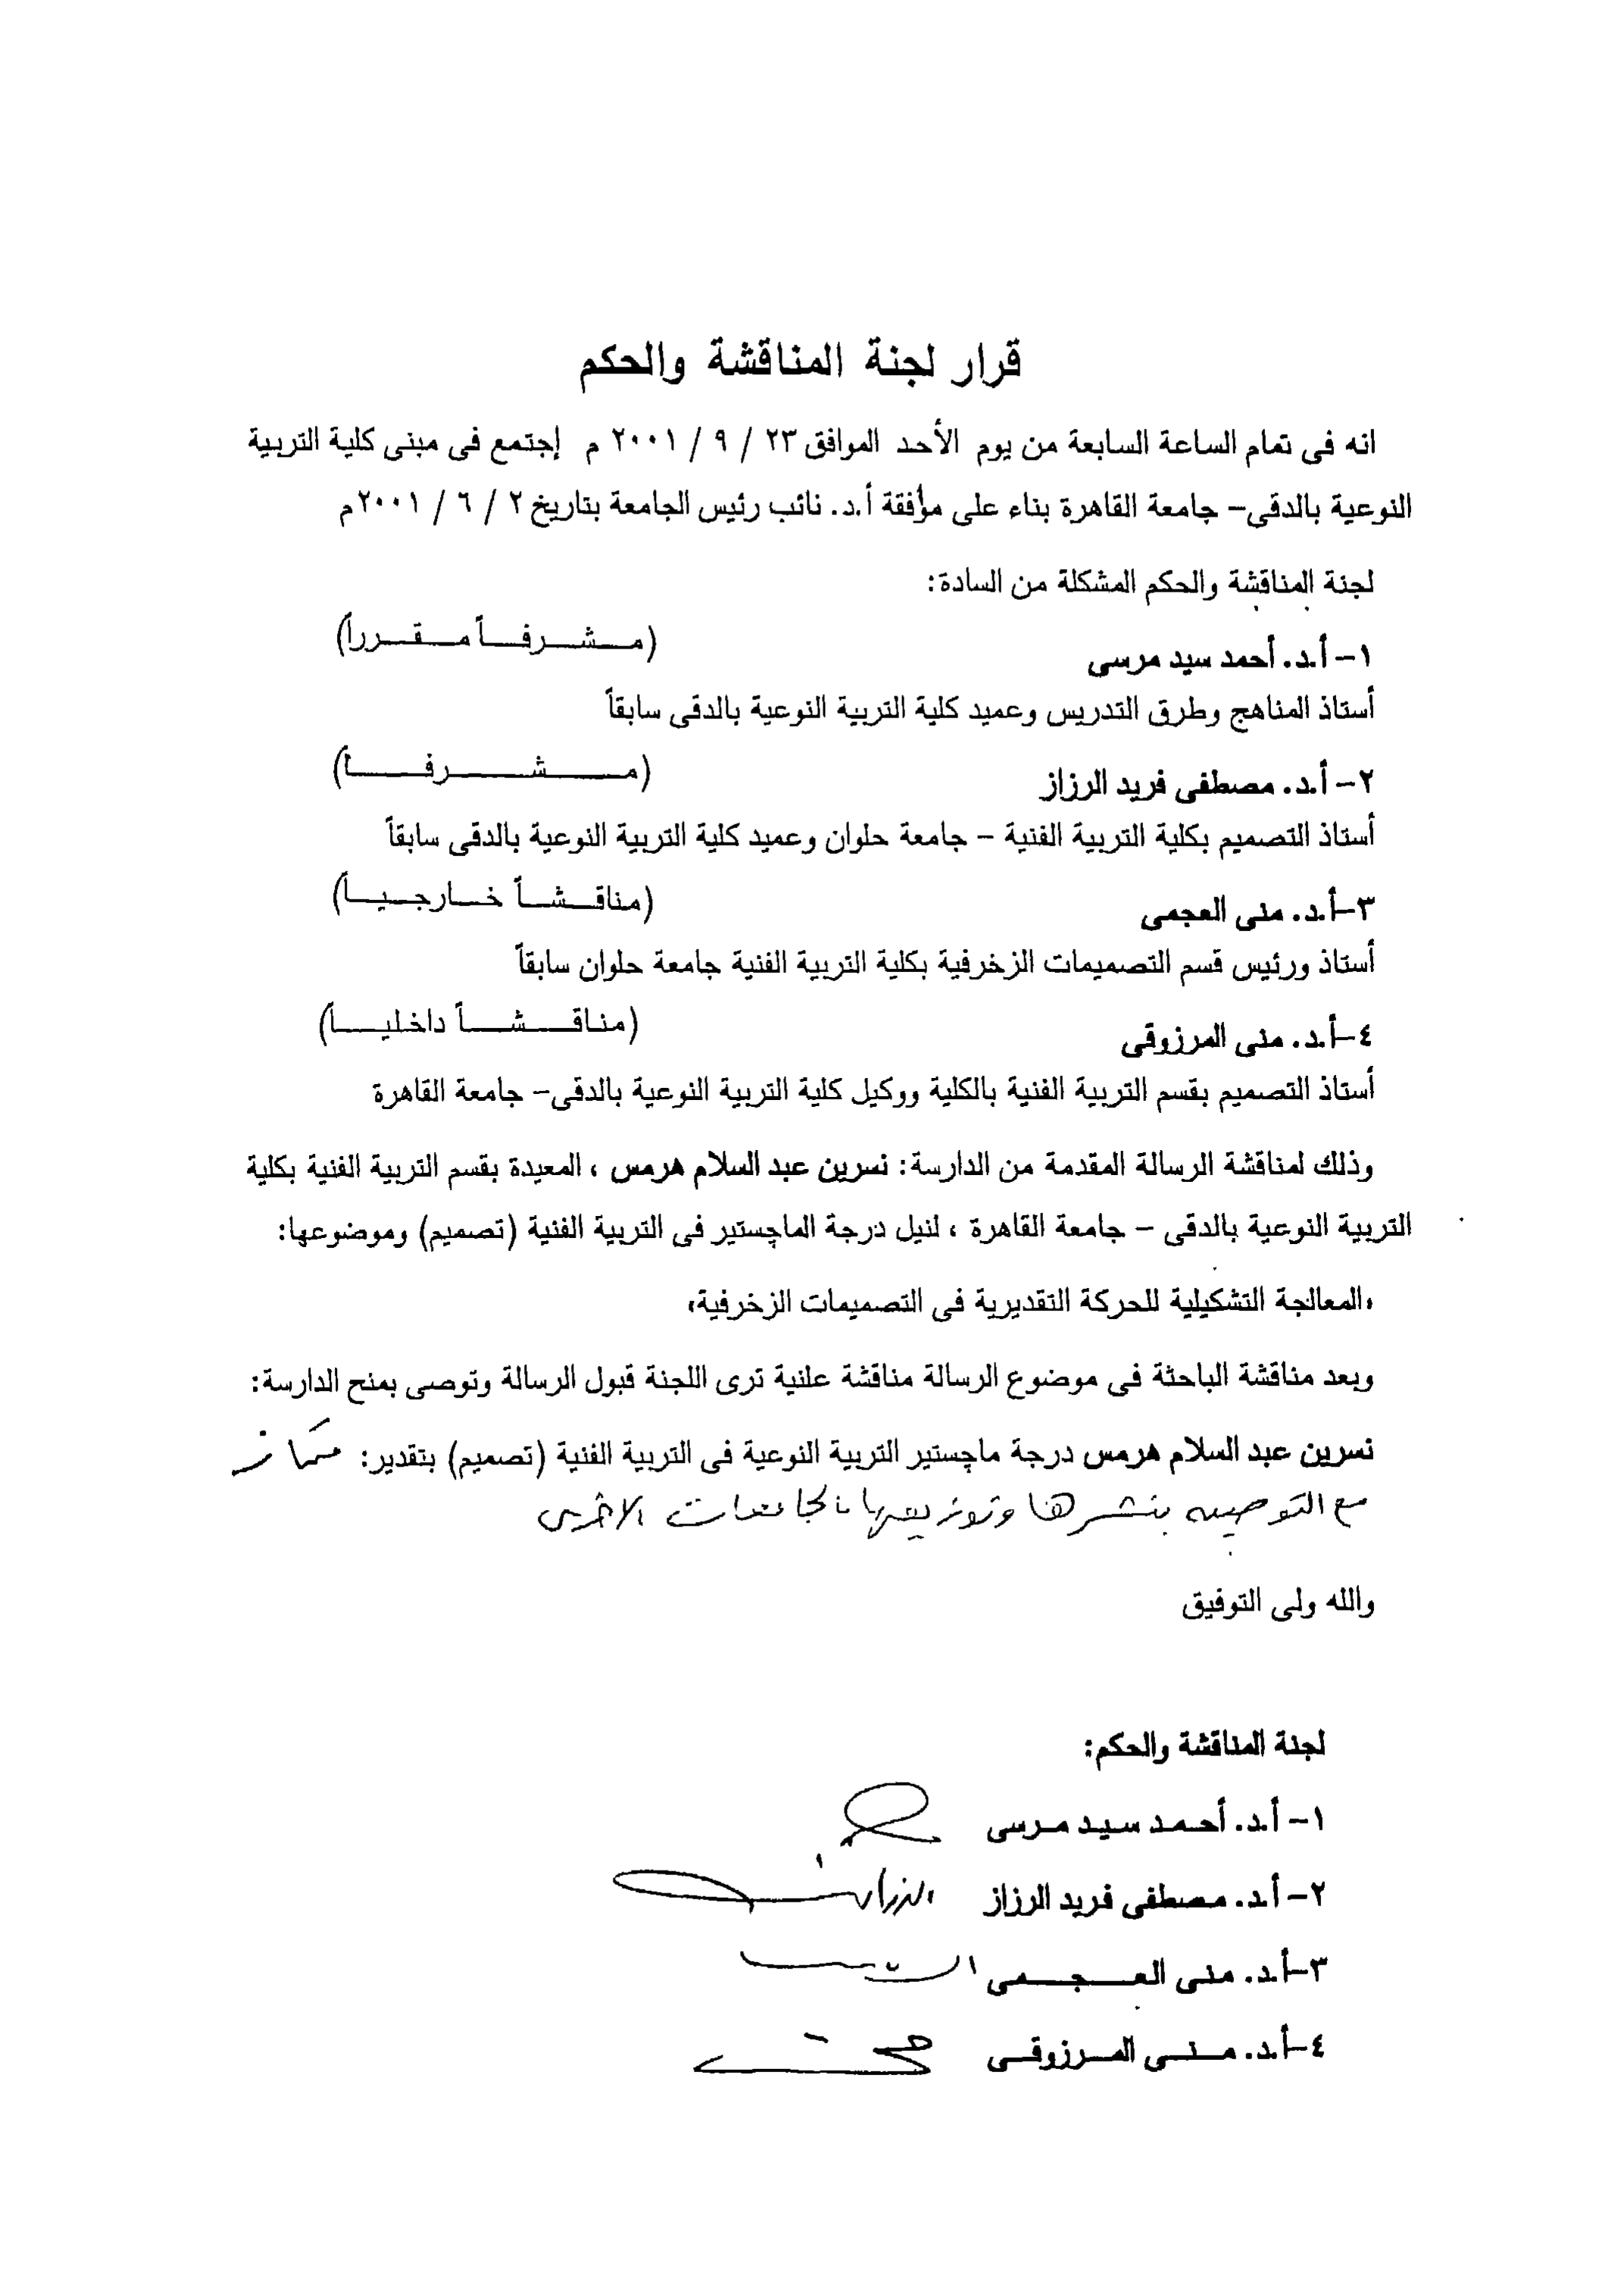 قرار لجنة المناقشة والحكم
انه فى تمام الساعة السابعة من يوم الأحد الموافق ٢٣ / ٩ / ٢٠٠١ م إجتمع فى مبنى كلية التربية
النوعية بالدقى- جامعة القاهرة بناء على مؤفقة أ.د. نائب رئيس الجامعة بتاريخ ٢ / ٦ / ٢٠٠١م
لجنة المناقشة والحكم المشكلة من السادة:
١- أ.د. أحمد سيد مرسى (مشرفاً مقرراً)
أستاذ المناهج وطرق التدريس وعميد كلية التربية النوعية بالدقى سابقاً
٢- أ.د. مصطفى فريد الرزاز (مشرفاً)
أستاذ التصميم بكلية التربية الفنية - جامعة حلوان وعميد كلية التربية النوعية بالدقى سابقاً
٣-أ.د. منى العجمى (مناقشاً خارجياً)
أستاذ ورئيس قسم التصميمات الزخرفية بكلية التربية الفنية جامعة حلوان سابقاً
٤-أ.د. منى المرزوقى (مناقشاً داخلياً)
أستاذ التصميم بقسم التربية الفنية بالكلية ووكيل كلية التربية النوعية بالدقى- جامعة القاهرة
وذلك لمناقشة الرسالة المقدمة من الدارسة: نسرين عبد السلام هرمس ، المعيدة بقسم التربية الفنية بكلية
التربية النوعية بالدقى - جامعة القاهرة ، لنيل درجة الماچستير فى التربية الفنية (تصميم) وموضوعها:
"المعالجة التشكيلية للحركة التقديرية فى التصميمات الزخرفية"
وبعد مناقشة الباحثة فى موضوع الرسالة مناقشة علنية ترى اللجنة قبول الرسالة وتوصى بمنح الدارسة:
نسرين عبد السلام هرمس درجة ماچستير التربية النوعية فى التربية الفنية (تصميم) بتقدير: ممتاز
مع التوصيه بنشرها وتوزيعها بالجامعات الاخرى
والله ولى التوفيق
لجنة المناقشة والحكم:
١- أ.د. أحمد سيد مرسى
٢- أ.د. مصطفى فريد الرزاز الرزاز
٣-أ.د. منى العجمى
٤-أ.د. منى المرزوقى